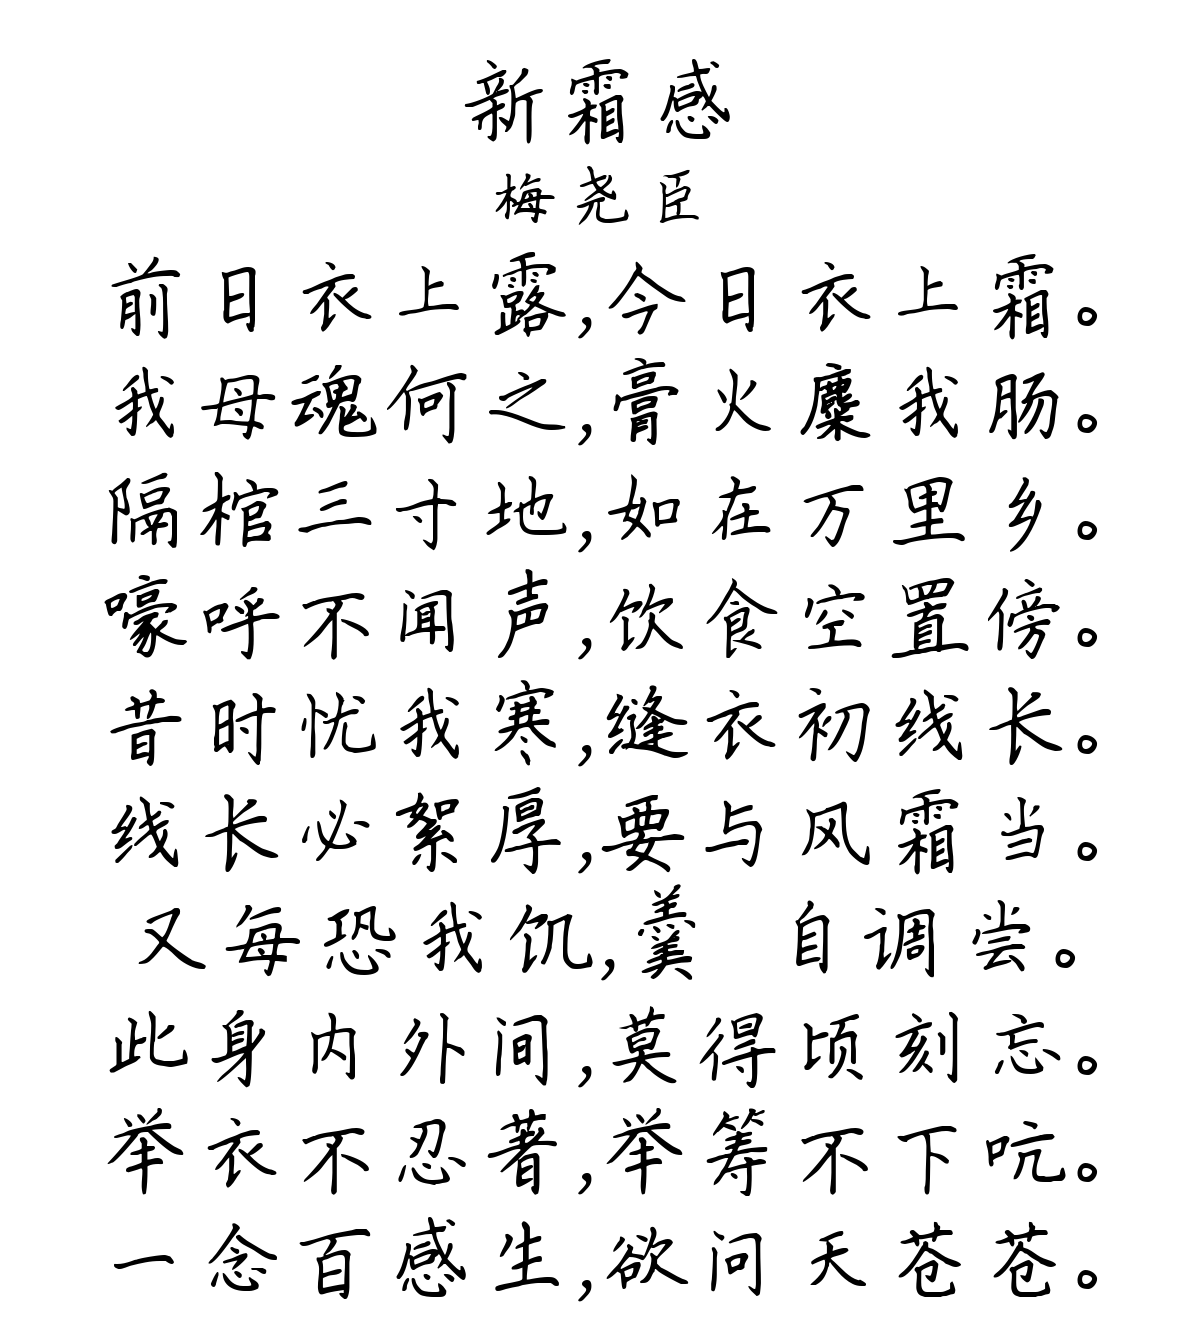 新霜感
梅尧臣
前日衣上露,今日衣上霜。
我母魂何之,膏火麋我肠。
隔棺三寸地,如在万里乡。
嚎呼不闻声,饮食空置傍。
昔时忧我寒,缝衣初线长。
线长必絮厚,要与风霜当。
又每恐我饥,羹 自调尝。
此身内外间,莫得顷刻忘。
举衣不忍著,举筹不下吭。
一念百感生,欲问天苍苍。